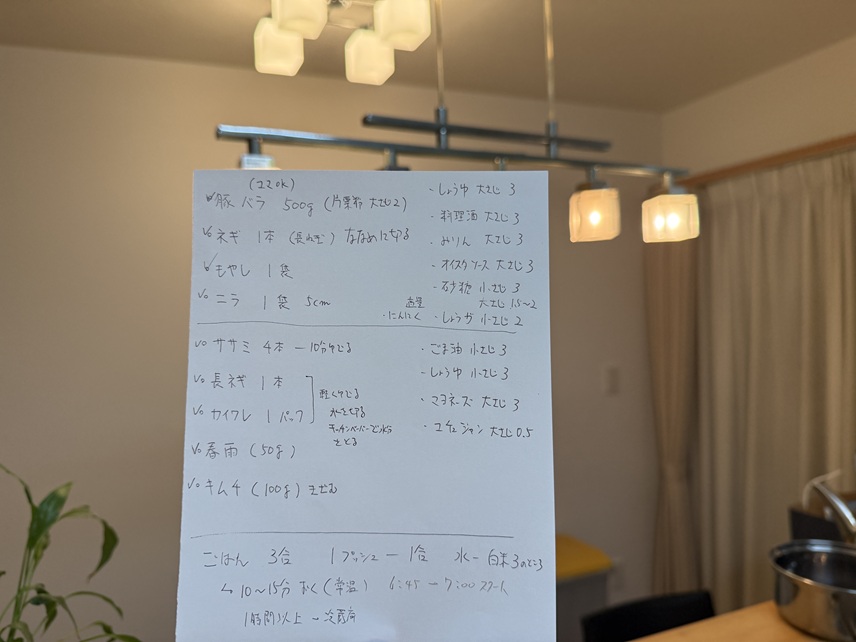 豚バラ 500g (片栗粉 大さじ2)
ネギ 1本 (長ねぎ) ななめに切る
もやし 1袋
ニラ 1袋 5cm
・しょうゆ 大さじ 3
・料理酒 大さじ 3
・みりん 大さじ 3
・オイスターソース 大さじ 3
・砂糖 小さじ 3
大さじ 1.5~2
適量
・にんにく ・しょうが 小さじ 2
ササミ 4本 ― 10分ゆでる
長ネギ 1本
カイワレ 1パック
軽くゆでる
水を切る
キッチンペーパーで水分
をとる
春雨 (50g)
キムチ (100g) きざむ
・ごま油 小さじ 3
・しょうゆ 小さじ 3
・マヨネーズ 大さじ 3
・コチュジャン 大さじ 0.5
ごはん 3合 1プッシュ ― 1合 水 ― 白米3のところ
↳ 10~15分 おく (常温) 6:45 ― 7:00 スタート
1時間以上 ― 冷蔵庫